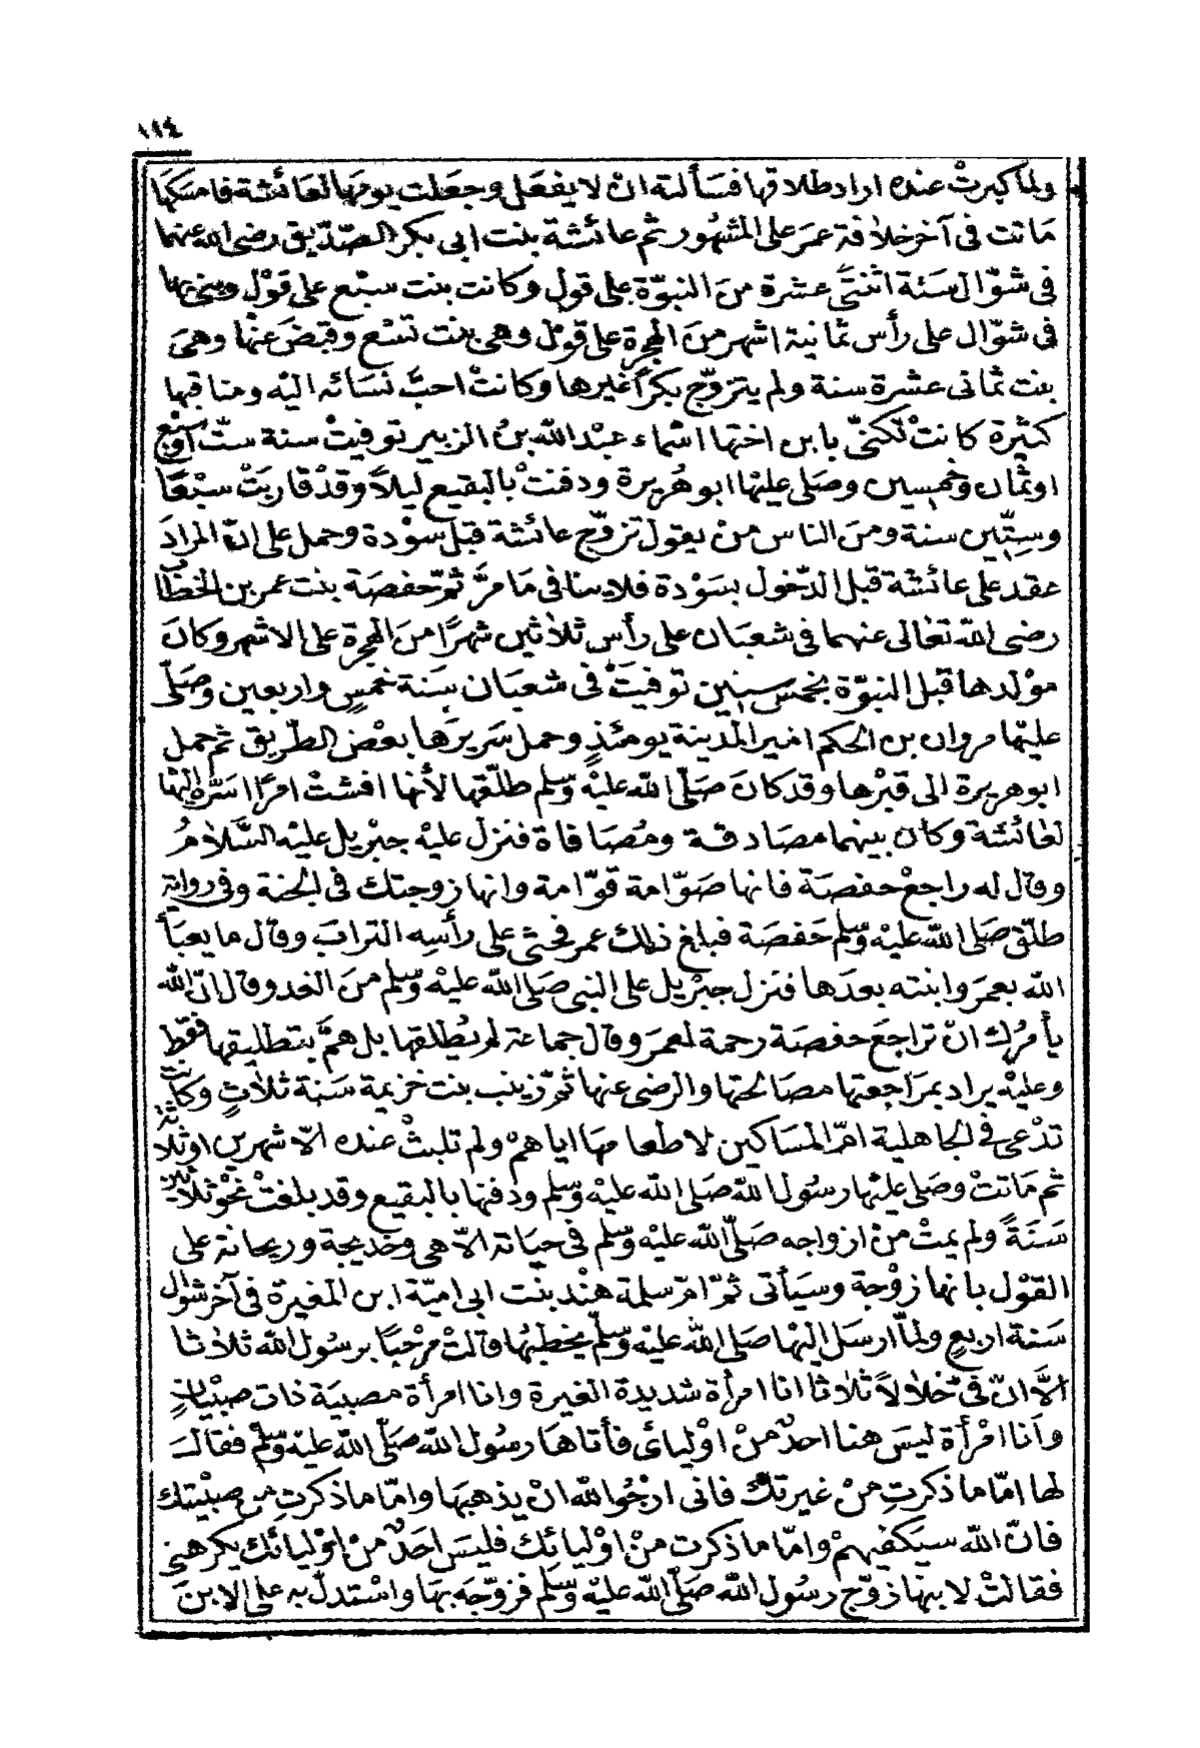 ١١٤
ولما كبرتْ عنده اراد طلاقها فسألته انْ لا يفعَل وجعَلت يومَها لعَائشة فامسَكهَا
مَاتت فى آخر خلافة عمَر على المشهُور ثم عائشة بنت ابى بكر الصّدّيق رضى الله عنهما
فى شوّال سَنة اثنتَى عشرة منَ النبوّة على قول وكانت بنت سبْع على قوْل وبنى بها
فى شوّال على رأس ثمانية اشهر منَ الهجرة على قوْل وهى بنت تسْع وقبضَ عنْها وهىَ
بنت ثمانى عشرة سنة ولم يتزوّج بكراً غيرها وكانتْ احبّ نسَائه اليْه ومناقبها
كثيرة كانتْ تكنىّ بابن اختها اسْماء عبْد الله بنُ الزبير توفيتْ سنة ستّ اوْ سبْع
اوثمان وخمسِين وصَلى عليْها ابو هُريرة ودفنتْ بالبقيع ليْلاً وقدْ قاربَتْ سبْعًا
وسِتّين سنة ومنَ الناس منْ يقول تزوّج عائشة قبْل سوْدة وحمل على انّ المرادَ
عقد على عائشة قبْل الدّخول بسَوْدة فلا ينافى مَا مرَّ ثمّ حفصَة بنت عمر بن الخطاب
رضى الله تعَالى عنهما فى شعبَان على رأس ثلاثين شهرًا منَ الهجرة على الاشهر وكانَ
موْلدها قبْل النبوّة بخمس سنين توفيَتْ فى شعبَان سَنة خمسٍ واربعين وصَلّى
عليْها مروان بن الحكم اميرالمدينة يومئذٍ وحمل سَريرَها بعْض الطّريق ثم حمل
ابو هريرة الى قبْرها وقد كانَ صَلّى الله عليْه وسّلم طلّقها لأنها افشتْ امرًا اسَرّه اليْها
لعائشة وكان بينهما مصَادقة ومُصَافاة فنزل عليْه جبْريل عليْه السَّلامُ
وقال له راجعْ حفصَة فانها صَوّامة قوّامة وانها زوجتك فى الجنة وفى رواية
طلّق صَلى الله عليْه وسّلم حَفصَة فبلغ ذلك عمر فحثى على رأسِه الترابَ وقال ما يعبَأ
الله بعمرَ وابنته بعدَها فنزل جبْريل على النبى صَلى الله عليْه وسّلم منَ الغد وقال انّ الله
يأمُرك انْ تراجعَ حفصَة رحمة لعمرَ وقال جماعة لم يُطلقها بل همَّ بتطليقها فقط
وعليْه يراد بمرَاجعتها مصَالحتها والرضى عنها ثمّ زينب بنت خزيمة سَنة ثلاثٍ وكانت
تدْعى فى الجاهلية امّ المسَاكين لاطعامهَا اياهمْ ولم تلبثْ عنده الاّ شهرين اوثلاثة
ثم مَاتتْ وصَلى عليْها رسُول الله صَلى الله عليْه وسّلم ودفنها بالبقيع وقد بلغتْ نحْو ثلاثين
سَنةً ولم يمتْ منْ ازواجه صَلّى الله عليْه وسّلم فى حيَاته الاّ هى وخديجة وريحانة على
القوْل بانها زوْجة وسيَأتى ثمّ امّ سلمة هنْد بنْت ابى اميّة ابن المغيرة فى آخر شوّال
سَنة اربعٍ ولماّ ارسَل اليْها صَلى الله عليْه وسّلّم يخطبُها قالتْ مرْحبًا برسُول الله ثلاثا
الاَّ انّ فىّ خلالاً ثلاثا انا امرأة شديدة الغيرة وانا امرأة مصبيَة ذات صبْيَانٍ
وَانا امْرأة ليسَ هنا احدٌ منْ اوْليائى فأتاهَا رسُول الله صَلّى الله عليْه وسّلّم فقالَ
لها امّا ما ذكرتِ منْ غيرتك فانى ارْجُوا الله انْ يذهبَها وامّا ما ذكرتِ من صبْيتك
فانّ الله سيَكفيهمْ وامّا ما ذكرت منْ اوْليائك فليسَ احَدٌ منْ اوْليائك يكرهنى
فقالتْ لابنها زوّج رسُول الله صَلّى الله عليْه وسّلم فزوّجَه بهَا واسْتدلّ به على الابنَ